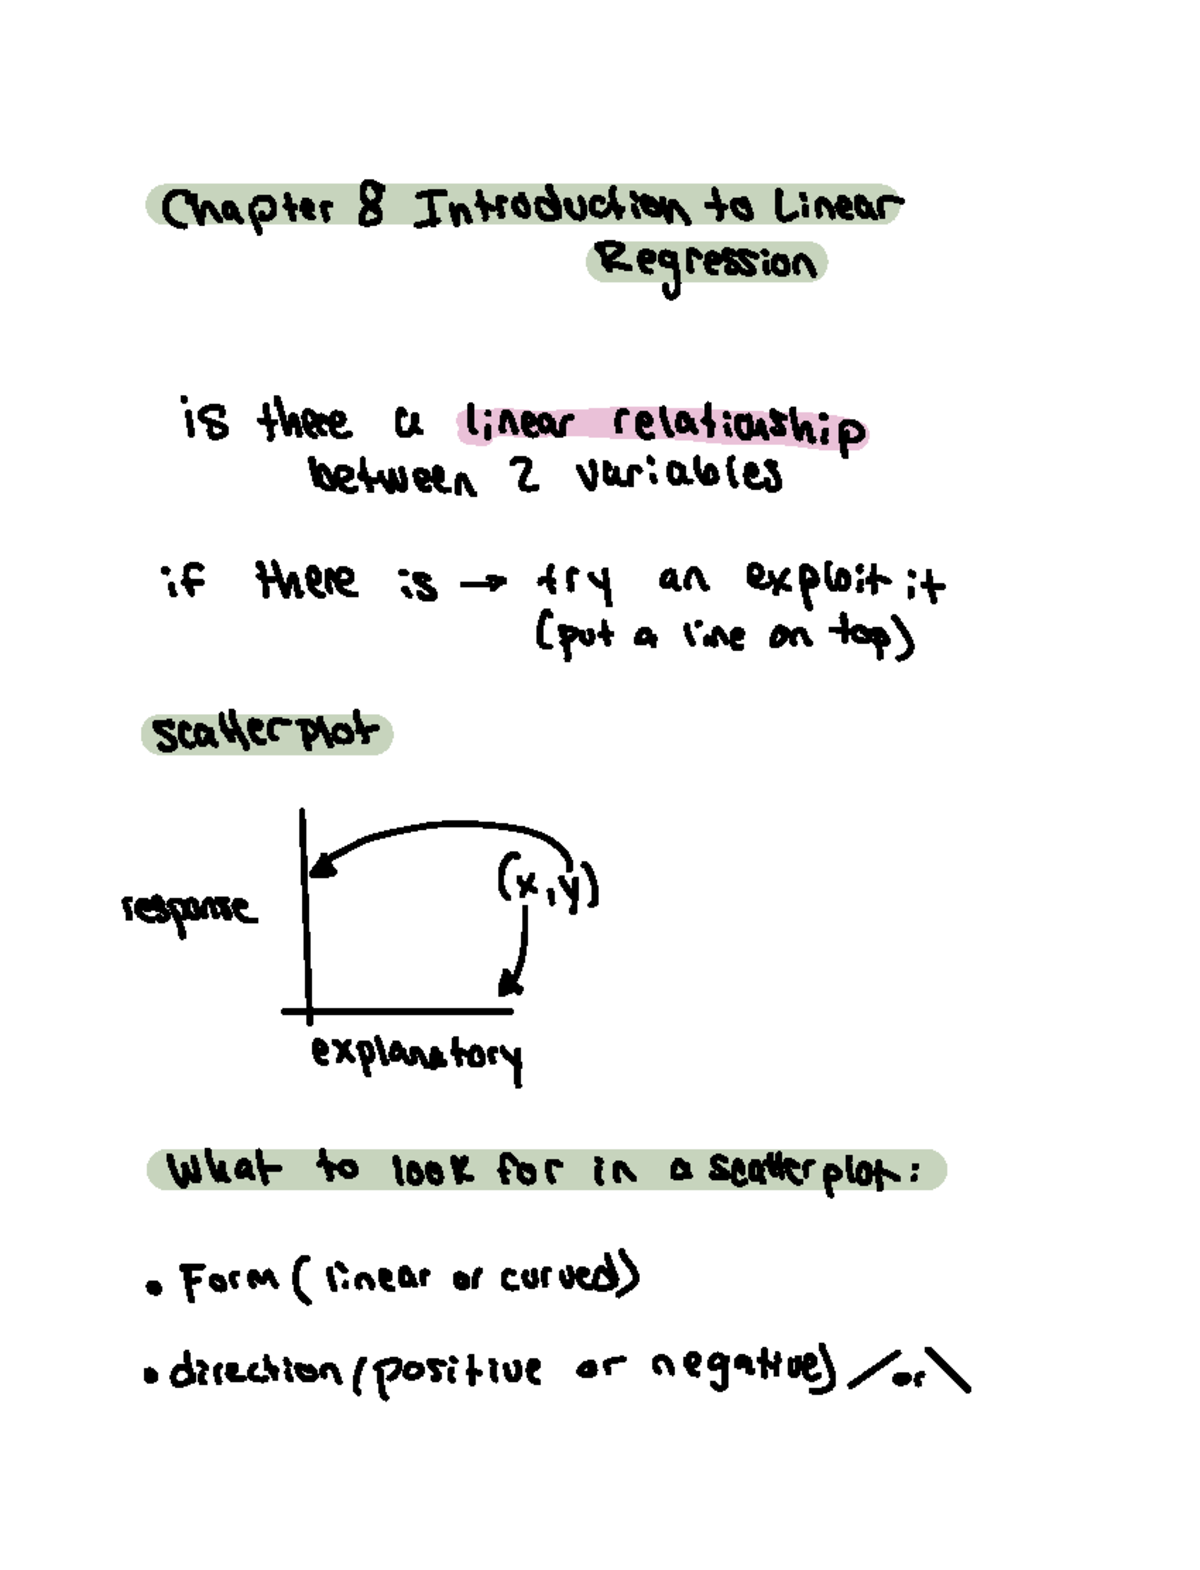 Chapter 8 Introduction to Linear
Regression
is there a linear relationship
between 2 variables
if there is → try an exploit it
(put a line on top)
scatter plot
(x,y)
response
explanatory
What to look for in a scatter plot:
• Form ( linear or curved)
• direction (positive or negative) / or \